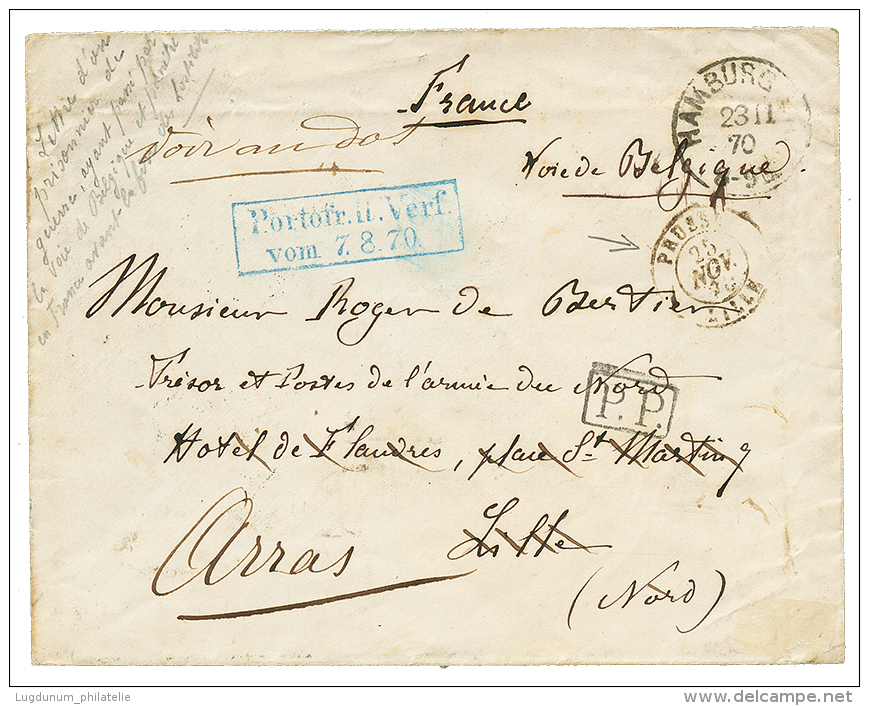 Lettre d'un
prisonnier de
guerre, ayant passé par
la voie de Belgique et
en France avant la fin des hostilités
France
voir au dos
HAMBURG
23 11
70
Voie de Belgique
Portofr. lt. Verf.
vom 7. 8. 70.
PRUSSE
25
NOV.
LILLE
Monsieur Roger de Bertier
Trésor et Postes de l'armée du Nord
P.P.
Hotel de Flandres, place St Martin 7
Arras Lille
(Nord)
Lugdunum_philatelie
delcampe.net